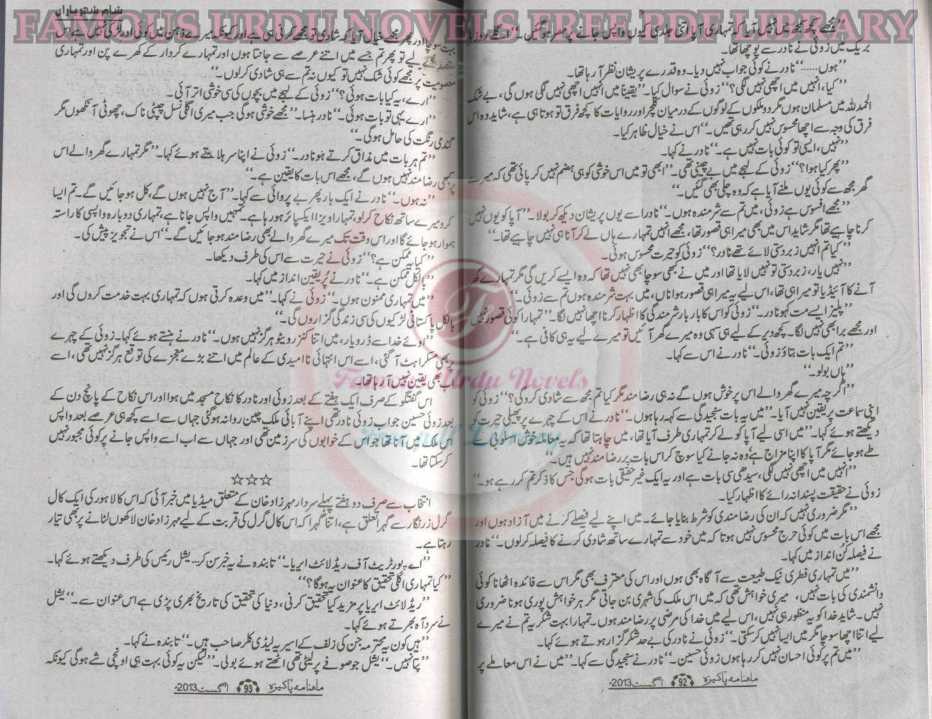 FAMOUS URDU NOVELS FREE PDF LIBRARY
بریک میں زوئی نے نادر سے پوچھا تھا۔
”ہوں......“ نادر نے کوئی جواب نہیں دیا۔ وہ قدرے پریشان نظر آرہا تھا۔
”کیا، انہیں میں اچھی نہیں لگی؟“ زوئی نے سوال کیا۔ ”یقیناً میں انہیں اچھی نہیں لگی ہوں گی، بے شک
الحمدللہ میں مسلمان ہوں مگر دو ملکوں کے لوگوں کے درمیان کلچر اور روایات کا کچھ فرق تو ہوتا ہی ہے، شاید وہ اس
فرق کی وجہ سے اچھا محسوس نہیں کر رہی تھیں۔“ اس نے خیال ظاہر کیا۔
”نہیں، ایسی تو کوئی بات نہیں ہے۔“ نادر نے کہا۔
”پھر کیا ہوا؟“ زوئی کے لہجے میں بے چینی تھی۔ ”ابھی تو میں اس خوشی کو ہی ہضم نہیں کر پائی تھی کہ میرے
گھر مجھ سے کوئی یوں ملنے آیا ہے کہ وہ چلی بھی گئیں۔“
”مجھے افسوس ہے زوئی، میں تم سے شرمندہ ہوں۔“ نادر اسے یوں پریشان دیکھ کر بولا۔ ”آپا کو یوں نہیں
کرنا چاہیے تھا مگر شاید اس میں بھی میرا ہی قصور تھا، مجھے انہیں تمہارے ہاں لے کر آنا ہی نہیں چاہیے تھا۔“
”کیا تم انہیں زبردستی لائے تھے نادر؟“ زوئی کو حیرت محسوس ہوئی۔
”نہیں یار، زبردستی تو نہیں لایا تھا اور میں نے بھی سوچا بھی نہیں تھا کہ وہ ایسے کریں گی مگر تمہارے گھر
آنے کا آئیڈیا تو میرا ہی تھا، اس لیے یہ میرا ہی قصور ہوا ناں، میں بہت شرمندہ ہوں تم سے زوئی۔“
”پلیز ایسے مت کہو نادر۔“ زوئی کو اس کا بار بار شرمندگی کا اظہار کرنا اچھا نہیں لگا۔ ”تمہارا کوئی قصور نہیں
اور مجھے برا بھی نہیں لگا۔ کچھ دیر کے لیے ہی سہی وہ میرے گھر آئیں تو میرے لیے یہ ہی کافی ہے۔“
”تم ایک بات بتاؤ زوئی۔“ نادر نے اس سے کہا۔
”ہاں بولو۔“
”اگرچہ میرے گھر والے اس پر خوش ہوں گے نہ ہی رضامند مگر کیا تم مجھ سے شادی کرو گی؟“ زوئی کو
اپنی سماعت پر یقین نہیں آیا۔ ”میں یہ بات سنجیدگی سے کہہ رہا ہوں۔“ نادر نے اس کے چہرے پر پھیلی حیرت کو
دیکھتے ہوئے کہا۔ ”میں اسی لیے آپا کو لے کر تمہاری طرف آیا تھا، میں چاہتا تھا کہ یہ معاملہ خوش اسلوبی سے
طے ہو جائے مگر آپا کا اپنا مزاج ہے وہ نہ جانے کیا سوچ کر اس بات پر رضامند نہیں ہیں۔“
”انہیں میں اچھی نہیں لگی، سیدھی سی بات ہے اور یہ ایک غیر حقیقی بات ہوگی جس کا ذکر تم کر رہے ہو۔“
زوئی نے حقیقت پسندانہ رائے کا اظہار کیا۔
”مگر ضروری نہیں کہ ان کی رضامندی کو شرط بنایا جائے۔ میں اپنے لیے فیصلے کرنے میں آزاد ہوں اور
مجھے اس بات میں کوئی حرج محسوس نہیں ہوتا کہ میں خود سے تمہارے ساتھ شادی کرنے کا فیصلہ کرلوں۔“ نادر
نے فیصلہ کن انداز میں کہا۔
”میں تمہاری فطری نیک طبیعت سے آگاہ بھی ہوں اور اس کی معترف بھی مگر اس سے فائدہ اٹھانا کوئی
دانشمندی کی بات نہیں، میری خواہش تھی کہ میں اس ملک کی شہری بن جاتی مگر ہر خواہش پوری ہونا ضروری
نہیں۔ شاید خدا کو یہ منظور ہی نہیں، اس لیے میں خدا کی مرضی پر رضامند ہوں۔ تمہارا بہت شکریہ تم نے میرے
لیے اتنا اچھا سوچا مگر میں ایسا نہیں کر سکتی۔“ زوئی نے نادر کی بے حد شکر گزار ہوتے ہوئے کہا۔
”میں تم پر کوئی احسان نہیں کر رہا ہوں زوئی حسین۔“ نادر نے سنجیدگی سے کہا۔ ”میں نے اس معاملے پر
ماہنامہ پاکیزہ 92 اگست 2013ء
معصومیت پر مجھے کوئی شک نہیں تو کیوں نہ تم سے ہی شادی کرلوں۔“
”ارے، یہ کیا بات ہوئی؟“ زوئی کے لہجے میں بچوں کی سی خوشی اتر آئی۔
”ارے یہی تو بات ہوئی۔“ نادر ہنسا۔ ”مجھے خوشی ہوگی جب میری اگلی نسل چپٹی ناک، چھوٹی آنکھوں مگر
گندمی رنگت کی حامل ہوگی۔“
”تم ہر بات میں مذاق کرتے ہو نادر۔“ زوئی نے اپنا سر ہلاتے ہوئے کہا۔ ”مگر تمہارے گھر والے اس
پر کبھی رضامند نہیں ہوں گے، مجھے اس بات کا یقین ہے۔“
”نہ ہوں۔“ نادر نے ایک بار پھر بے پروائی سے کہا۔ ”آج نہیں ہوں گے، کل ہو جائیں گے۔ تم ایسا
کرو میرے ساتھ نکاح کرلو، تمہارا ویزا ایکسپائر ہو رہا ہے۔ تمہیں واپس جانا ہے، تمہاری دوبارہ واپسی کا راستہ
ہموار ہو جائے گا اور اس وقت تک میرے گھر والے بھی رضامند ہو جائیں گے۔“ اس نے تجویز پیش کی۔
”کیا یہ ممکن ہے؟“ زوئی نے حیرت سے اس کی طرف دیکھا۔
”بالکل ممکن ہے۔“ نادر نے پُریقین انداز میں کہا۔
”میں تمہاری ممنون ہوں۔“ زوئی نے کہا۔ ”میں وعدہ کرتی ہوں کہ تمہاری بہت خدمت کروں گی اور
بالکل پاکستانی لڑکیوں کی سی زندگی گزاروں گی۔“
”اوئے خدا سے ڈرو یار، میں اتنا کنزرویٹو ہرگز نہیں ہوں۔“ نادر نے ہنستے ہوئے کہا۔ زوئی کے چہرے
پر بھی مسکراہٹ آگئی، اسے اس انتہائی ناامیدی کے عالم میں اتنے بڑے معجزے کی توقع ہرگز نہیں تھی، اسے
اب بھی یقین نہیں آرہا تھا۔
اس گفتگو کے صرف ایک ہفتے کے بعد زوئی اور نادر کا نکاح مسجد میں ہوا اور اس نکاح کے پانچ دن کے
بعد زوئی حسین جواب زوئی نادر تھی اپنے آبائی ملک چین روانہ ہوگئی جہاں سے اسے کچھ ہی عرصے بعد واپس
اس ملک میں آنا تھا جو اس کے خوابوں کی سرزمین تھی اور جہاں سے اب اسے واپس جانے پر کوئی مجبور نہیں
کر سکتا تھا۔
☆☆☆
انتخاب سے صرف دو ہفتے پہلے سردار مہرزاد خان کے متعلق میڈیا میں خبر آئی کہ اس کا لاہور کی ایک کال
گرل زرنگار سے گہرا تعلق ہے، اتنا گہرا کہ اس کال گرل کی قربت کے لیے مہرزاد خان لاکھوں لٹانے پر بھی تیار
رہتا ہے۔
”اے پورٹریٹ آف ریڈ لائٹ ایریا۔“ تابندہ نے یہ خبر سن کر یشل رئیس کی طرف دیکھتے ہوئے کہا۔
”کیا تمہاری اگلی تحقیق کا عنوان یہ ہوگا؟“
”ریڈ لائٹ ایریا پر مزید کیا تحقیق کرنی، دنیا کی تحقیق کی تاریخ بھری پڑی ہے اس عنوان سے۔“ یشل
نے سرد آہ بھرتے ہوئے کہا۔
”ہیں کون یہ محترمہ جن کی زلف کے اسیر یہ لیڈی کلر صاحب ہیں۔“ تابندہ نے کہا۔
”پتا نہیں۔“ یشل جو صوفے پر لیٹی تھی اٹھتے ہوئے بولی۔ ”لیکن یہ کوئی بہت ہی اونچی شے ہوگی کیونکہ
ماہنامہ پاکیزہ 93 اگست 2013ء
Famous Urdu Novels